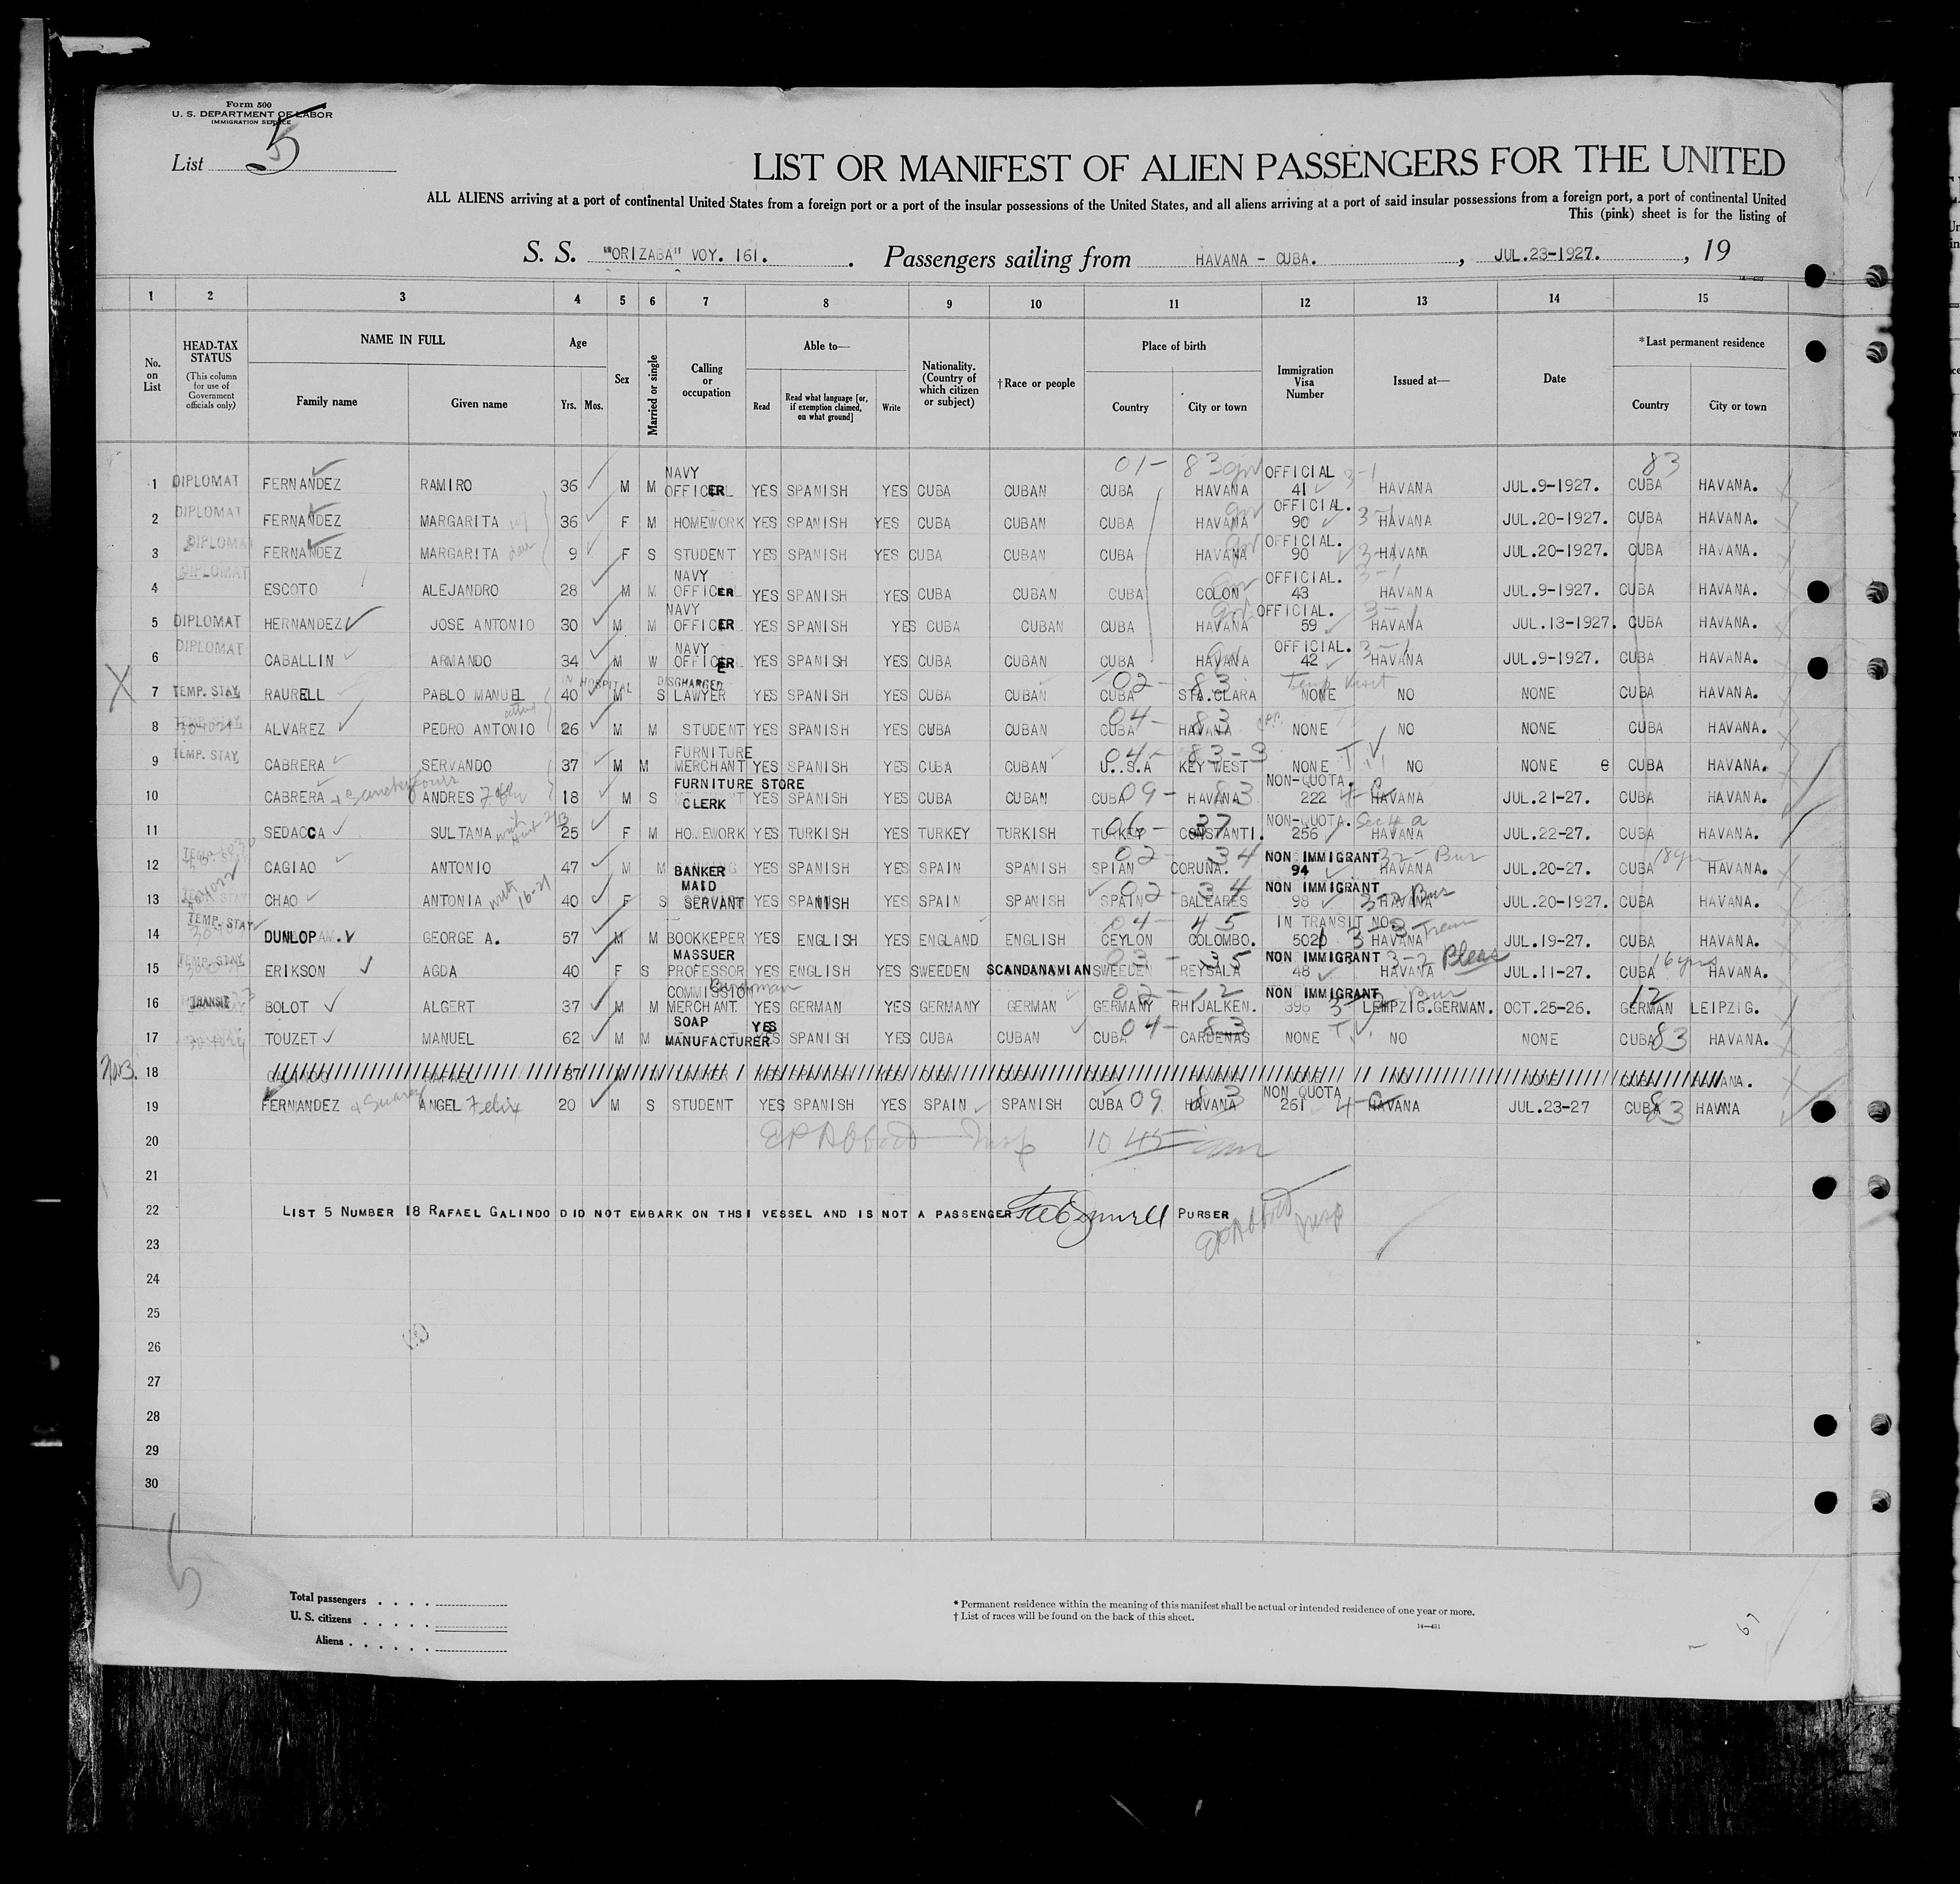 Form 500
U. S. DEPARTMENT OF LABOR
IMMIGRATION SERVICE
List 5
LIST OR MANIFEST OF ALIEN PASSENGERS FOR THE UNITED
ALL ALIENS arriving at a port of continental United States from a foreign port or a port of the insular possessions of the United States, and all aliens arriving at a port of said insular possessions from a foreign port, a port of continental United
This (pink) sheet is for the listing of
S. S. "ORIZABA" VOY. 161. Passengers sailing from HAVANA - CUBA. , JUL.23-1927. , 19
1 2 3 4 5 6 7 8 9 10 11 12 13 14 15
No. on List
HEAD-TAX STATUS (This column for use of Government officials only)
NAME IN FULL
Family name Given name
Age
Yrs. Mos.
Sex
Married or single
Calling or occupation
Able to—
Read Read what language [or, if exemption claimed, on what ground] Write
Nationality. (Country of which citizen or subject)
†Race or people
Place of birth
Country City or town
Immigration Visa Number
Issued at—
Date
*Last permanent residence
Country City or town
1 DIPLOMAT FERNANDEZ RAMIRO 36 M M NAVY OFFICER YES SPANISH YES CUBA CUBAN CUBA 01- 83 HAVANA OFFICIAL 41 3-1 HAVANA JUL.9-1927. CUBA 83 HAVANA.
2 DIPLOMAT FERNANDEZ MARGARITA 36 F M HOMEWORK YES SPANISH YES CUBA CUBAN CUBA HAVANA OFFICIAL. 90 3-1 HAVANA JUL.20-1927. CUBA HAVANA.
3 DIPLOMAT FERNANDEZ MARGARITA 9 F S STUDENT YES SPANISH YES CUBA CUBAN CUBA HAVANA OFFICIAL. 90 3-1 HAVANA JUL.20-1927. CUBA HAVANA.
4 DIPLOMAT ESCOTO ALEJANDRO 28 M M NAVY OFFICER YES SPANISH YES CUBA CUBAN CUBA COLON OFFICIAL. 43 3-1 HAVANA JUL.9-1927. CUBA HAVANA.
5 DIPLOMAT HERNANDEZ JOSE ANTONIO 30 M M NAVY OFFICER YES SPANISH YES CUBA CUBAN CUBA HAVANA OFFICIAL. 59 3-1 HAVANA JUL.13-1927. CUBA HAVANA.
6 DIPLOMAT CABALLIN ARMANDO 34 M W NAVY OFFICER YES SPANISH YES CUBA CUBAN CUBA HAVANA OFFICIAL. 42 3-1 HAVANA JUL.9-1927. CUBA HAVANA.
IN HOSPITAL DISCHARGED
X 7 TEMP. STAY RAURELL PABLO MANUEL 40 M S LAWYER YES SPANISH YES CUBA CUBAN CUBA 02- 83 STA.CLARA Temp Visit NONE NO NONE CUBA HAVANA.
8 TEMP. STAY ALVAREZ PEDRO ANTONIO 26 M M STUDENT YES SPANISH YES CUBA CUBAN CUBA 04- 83 HAVANA NONE NO NONE CUBA HAVANA.
9 TEMP. STAY CABRERA SERVANDO 37 M M FURNITURE MERCHANT YES SPANISH YES CUBA CUBAN U.S.A 04- 83-3 KEY WEST NONE T.V. NO NONE e CUBA HAVANA.
10 CABRERA ANDRES 18 M S FURNITURE STORE CLERK YES SPANISH YES CUBA CUBAN CUBA 09- 83 HAVANA NON-QUOTA. 222 HAVANA JUL.21-27. CUBA HAVANA.
11 SEDACCA SULTANA 25 F M HOMEWORK YES TURKISH YES TURKEY TURKISH TURKEY 06- 37 CONSTANTI. NON-QUOTA. 256 Sec 4 a HAVANA JUL.22-27. CUBA HAVANA.
12 TEMP. STAY CAGIAO ANTONIO 47 M M BANKER YES SPANISH YES SPAIN SPANISH SPIAN 02- 34 CORUNA. NON IMMIGRANT 94 32- Bus HAVANA JUL.20-27. CUBA HAVANA.
13 TEMP. STAY CHAO ANTONIA 40 F S MAID SERVANT YES SPANISH YES SPAIN SPANISH SPAIN 02- 34 BALEARES NON IMMIGRANT 98 Bus HAVANA JUL.20-1927. CUBA HAVANA.
14 TEMP. STAY DUNLOP GEORGE A. 57 M M BOOKKEPER YES ENGLISH YES ENGLAND ENGLISH CEYLON 04- 45 COLOMBO. IN TRANSIT NO. HAVANA JUL.19-27. CUBA HAVANA.
15 TEMP. STAY ERIKSON AGDA 40 F S MASSUER PROFESSOR YES ENGLISH YES SWEEDEN SCANDANAVIAN SWEEDEN 03- 35 REYSALA NON IMMIGRANT 48 3-2 Pleas HAVANA JUL.11-27. CUBA 16yrs HAVANA.
16 TRANSIT BOLOT ALGERT 37 M M COMMISSION MERCHANT. YES GERMAN YES GERMANY GERMAN GERMANY 02- 12 RHIJALKEN. NON IMMIGRANT 396 Bus LEIPZIG.GERMAN. OCT.25-26. GERMAN 12 LEIPZIG.
17 TOUZET MANUEL 62 M M SOAP MANUFACTURER YES SPANISH YES CUBA CUBAN CUBA 04- 83 CARDENAS NONE T.V. NO NONE CUBA 83 HAVANA.
18 GALINDO RAFAEL HAVANA.
19 FERNANDEZ & Suarez ANGEL Felix 20 M S STUDENT YES SPANISH YES SPAIN SPANISH CUBA 09 83 HAVANA NON QUOTA 261 HAVANA JUL.23-27 CUBA 83 HAVANA
20 10 45 am
21
22 LIST 5 NUMBER 18 RAFAEL GALINDO DID NOT EMBARK ON THSI VESSEL AND IS NOT A PASSENGER PURSER
23
24
25
26
27
28
29
30
Total passengers
U. S. citizens
Aliens
* Permanent residence within the meaning of this manifest shall be actual or intended residence of one year or more.
† List of races will be found on the back of this sheet.
14—431